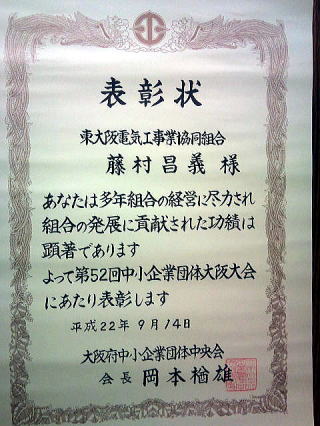 表彰状
東大阪電気工事業協同組合
藤村昌義様
あなたは多年組合の経営に尽力され
組合の発展に貢献された功績は
顕著であります
よって第52回中小企業団体大阪大会
にあたり表彰します
平成22年9月14日
大阪府中小企業団体中央会
会長 岡本楢雄